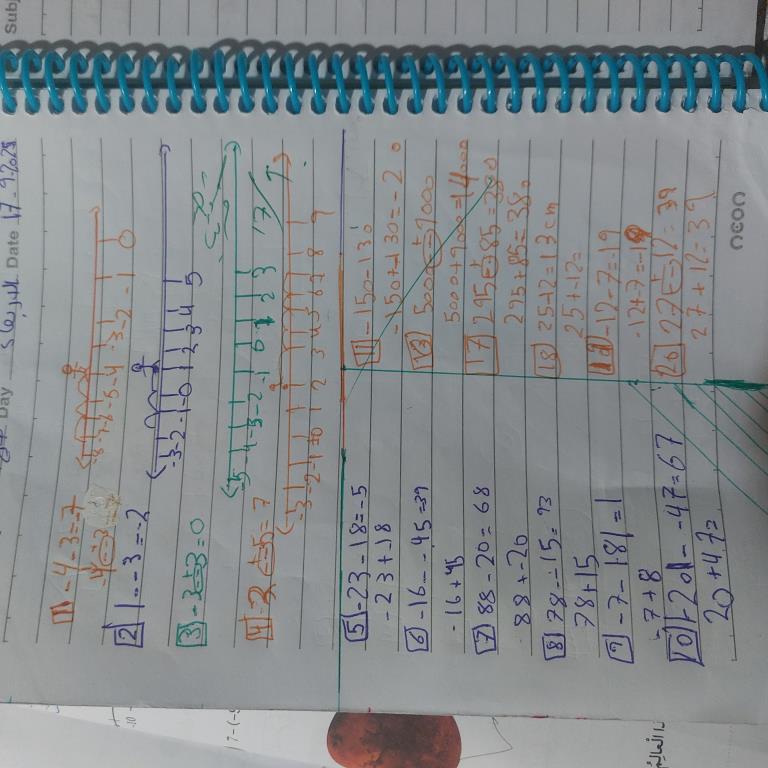 Day الاربعاء Date 17-9-2025
1 -4-3=-7
-8 -7 -6 -5 -4 -3 -2 -1 0
2 1--3=-2
-3 -2 -1 0 1 2 3 4 5
3 -3+3=0
-5 -4 -3 -2 -1 0 1 2 3
4 2--5=7
-3 -2 -1 0 1 2 3 4 5 6 7 8 9
5 -23-18=-5
-23+-18
6 -16--45=39
-16+45
7 88-20=68
88+-20
8 78--15=93
78+15
9 -7-|8|=1
-7+8
10 |20|--47=67
20+47=
11 -150-130
-150+-130=-20
13 5000--9000
5000+9000=14000
17 295--85=380
295+85=380
18 25-12=13cm
25+-12=
-12-7=-19
-12+7=-19
20 27--12=39
27+12=39
neon